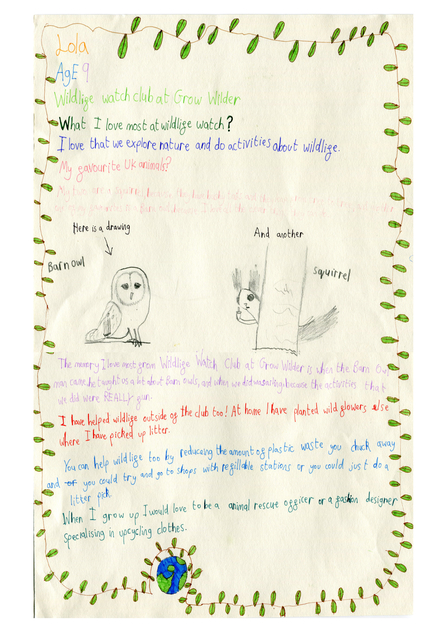 Lola
AgE 9
Wildlige watch club at Grow Wilder
What I love most at wildlige watch?
I love that we explore nature and do activities about wildlige.
My gavourite UK animals?
Here is a drawing
And another
Barn owl
squirrel
The memory I love most grom Wildlige Watch Club at Grow Wilder is when the Barn Owl
man came, he taught us a lot about Barn owls, and when we did because the activities that
we did were REALLY gun.
I have helped wildlige outside og the club too! At home I have planted wild glowers else
where I have picked up litter.
You can help wildlige too by reducing the amount og plastic waste you chuck away
and or you could try and go to shops with regillable stations or you could just do a
litter pick
When I grow up I would love to be a animal rescue oggicer or a gashion designer
specialising in upcycling clothes.